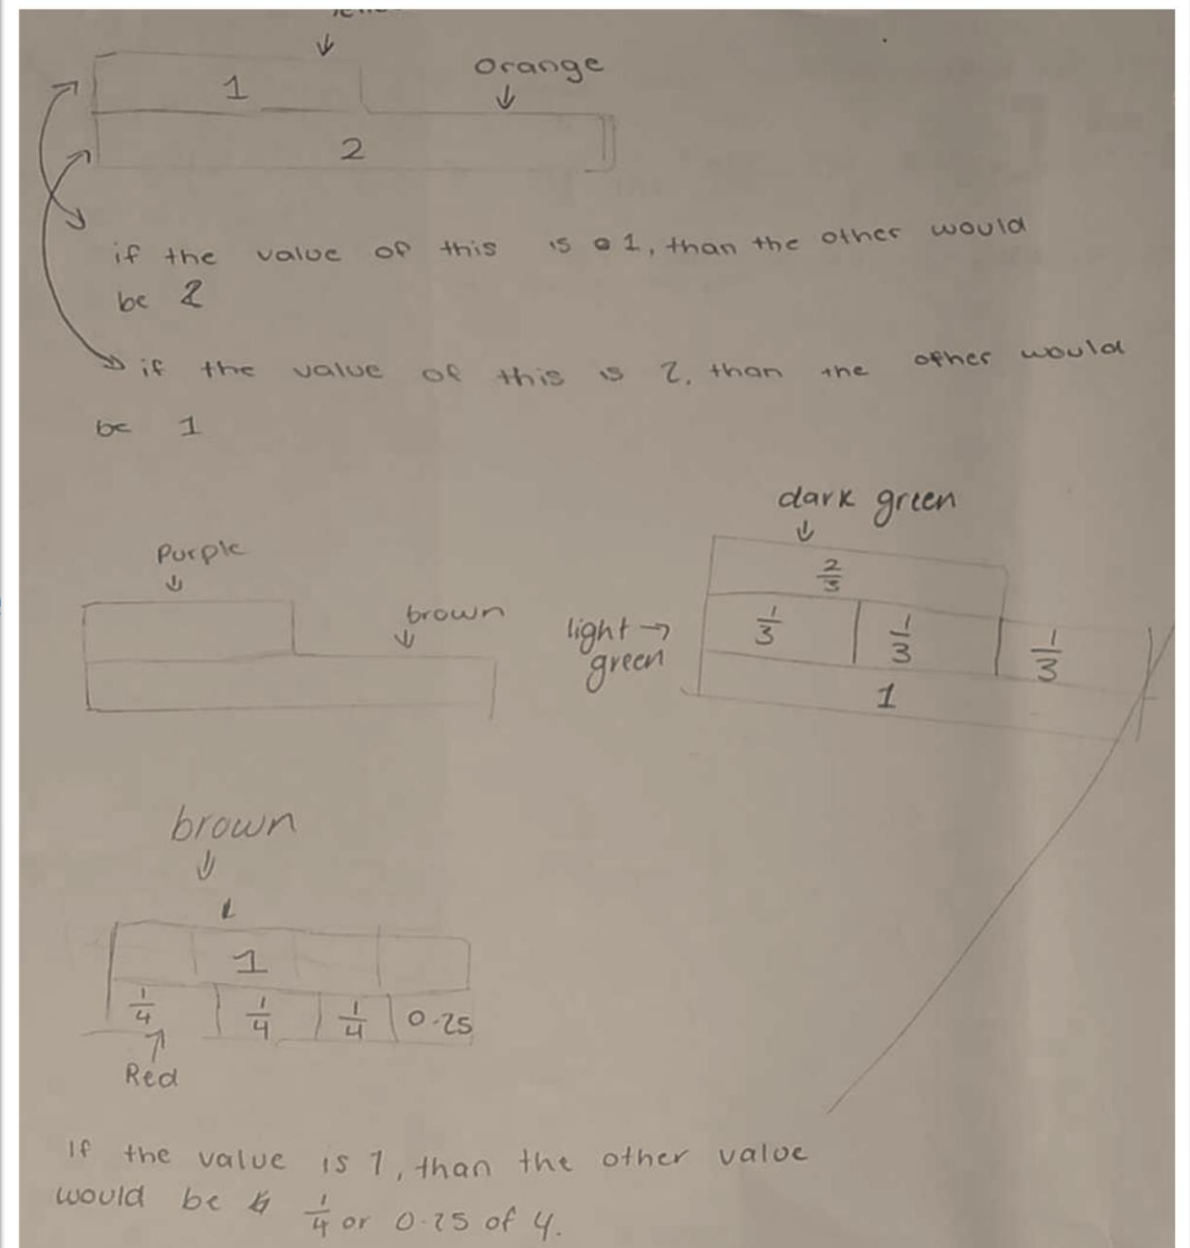 Orange
1
2
if the value of this is 1, than the other would
be 2
if the value of this is 2, than the other would
be 1
dark green
Purple
2/3
brown
light → green
1/3 1/3 1/3
1
brown
1
1/4 1/4 1/4 0.25
Red
If the value is 1, than the other value
would be 1/4 or 0.25 of 4.